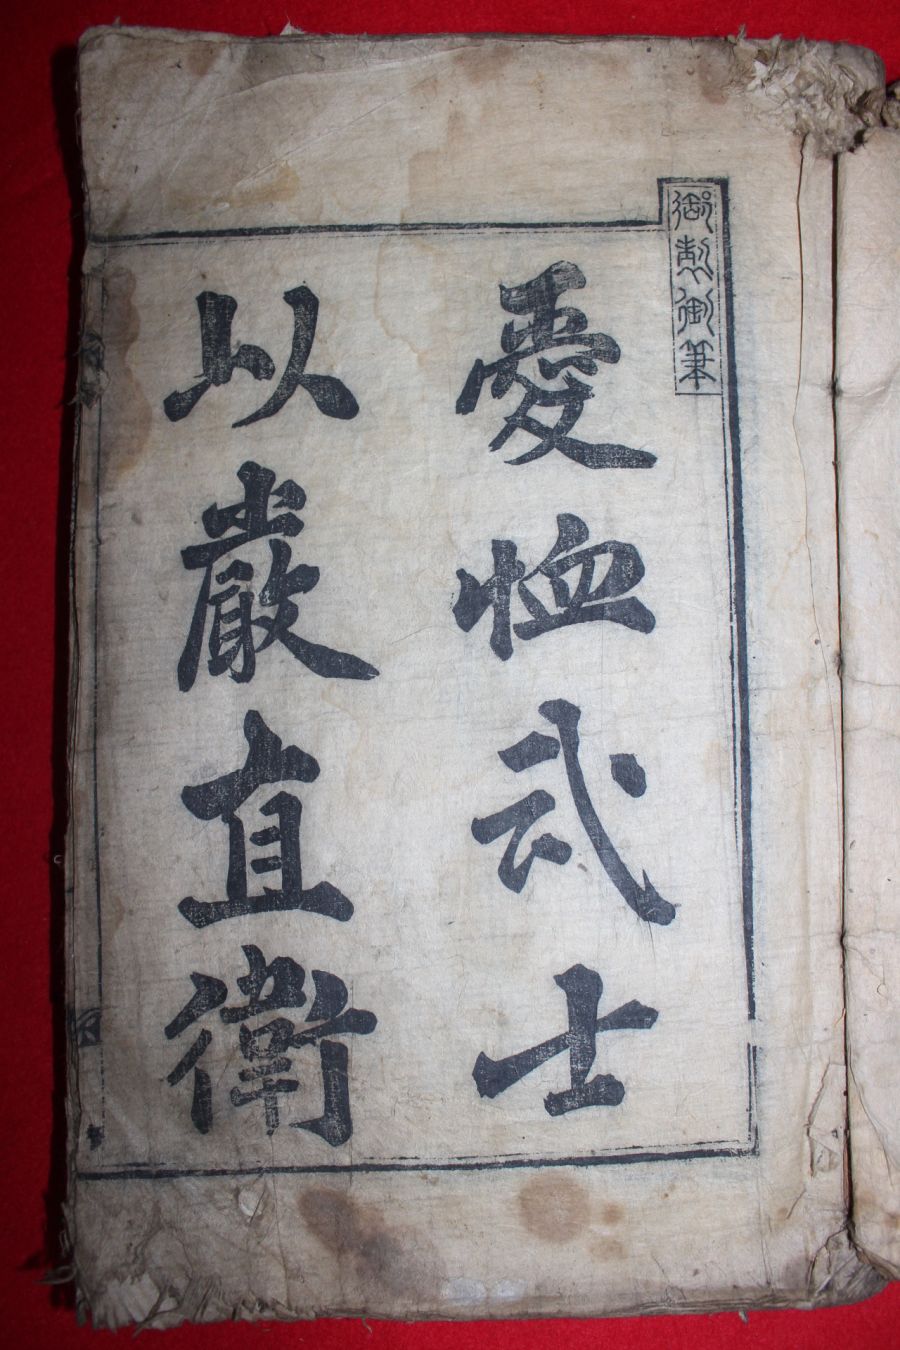 御製御筆
愛恤武士
以嚴直衛